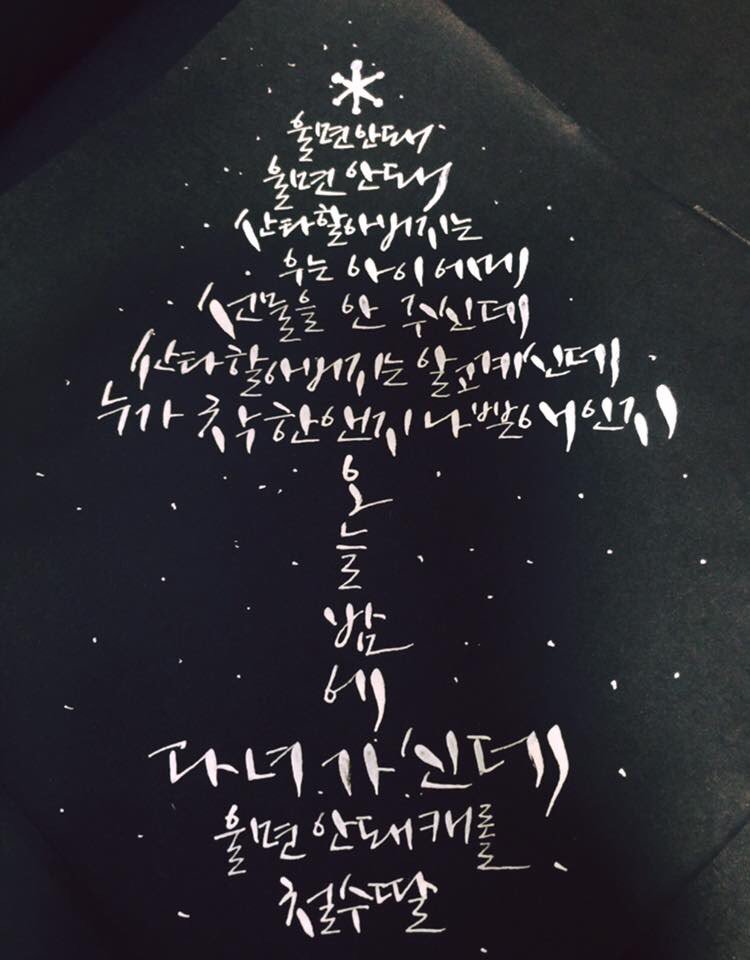 울면안돼
울면 안돼
산타할아버지는
우는 아이에게
선물을 안 주신데
산타할아버지는 알고계신데
누가 착한앤지 나쁜애인지
오
늘
밤
에
다녀가신데
울면 안돼 캐롤
철수딸